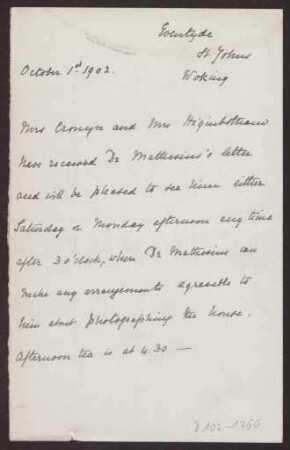 Eventyde
St Johns
Woking
October 1st 1902.
Mrs Cronyn and Mrs Higinbotham
have received Dr Mathesius's letter
and will be pleased to see him either
Saturday or Monday afternoon any time
after 3 o'clock, when Dr Mathesius can
make any arrangements agreeable to
him about photographing the house.
Afternoon tea is at 4.30 —
D 102-1260